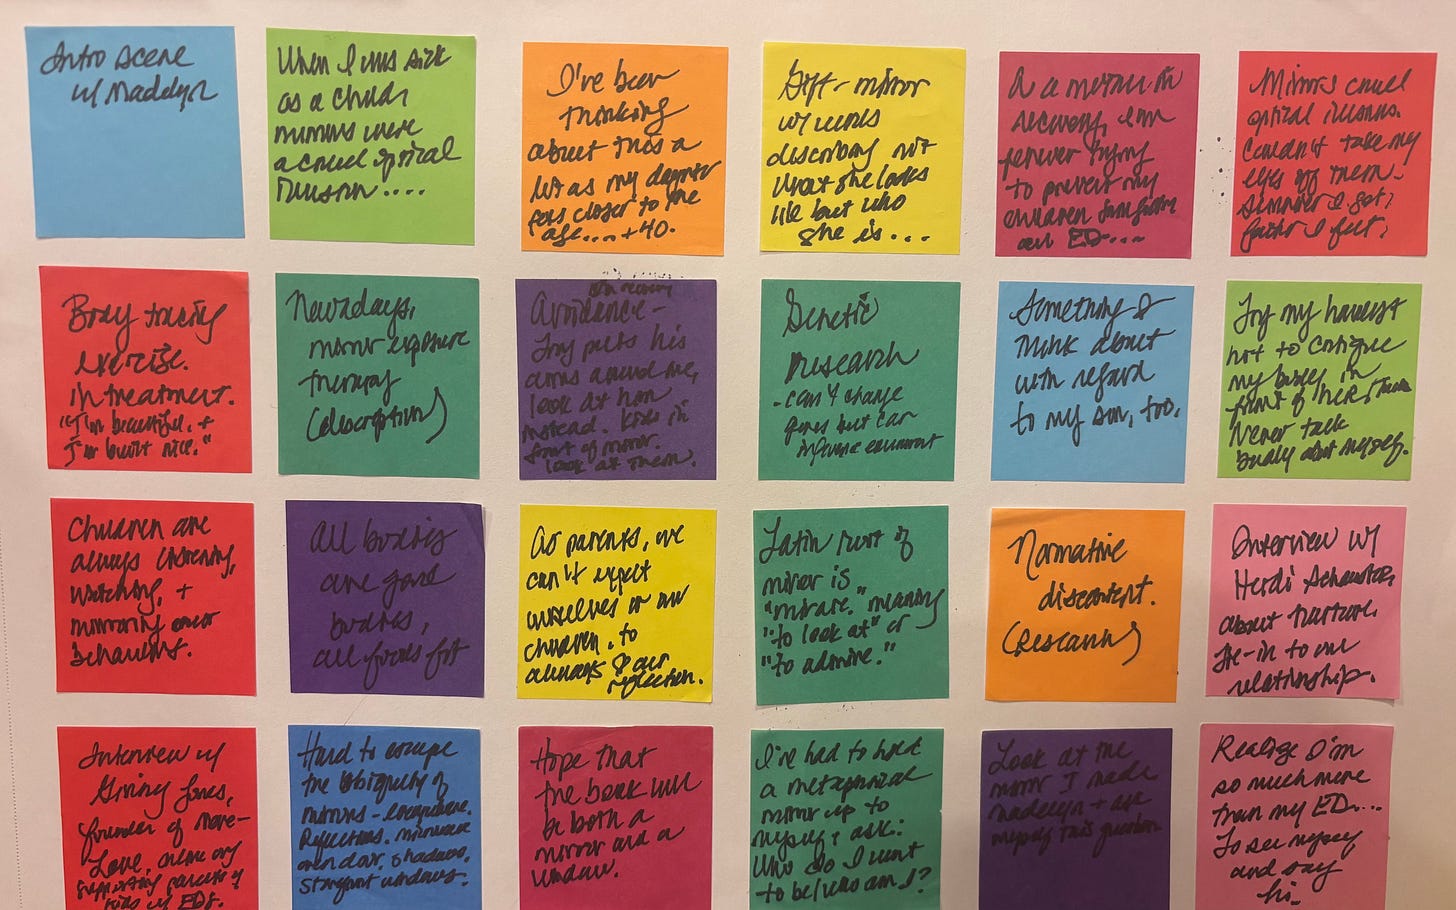 Intro scene
w/ Madelyn
When I was sick
as a child,
mirrors were
a cruel optical
illusion....
I've been
thinking
about this a
lot as my daughter
gets closer to the
age.... + 40.
Gift - mirror
w/ words
describing not
what she looks
like but who
she is...
As a mother in
recovery, I'm
forever trying
to prevent my
children from getting
an ED....
Mirrors cruel
optical illusions.
Couldn't take my
eyes off them.
Skinnier I got,
fatter I felt.
Body tracing
exercise.
in treatment.
"I'm beautiful, +
I'm built nice."
Nowadays,
mirror exposure
therapy
(description)
in recovery
Avoidance -
Troy puts his
arms around me,
look at him
instead. Kids in
front of mirror.
look at them.
Genetic
Research
- can't change
genes but can
influence environment
Something I
think about
with regard
to my son, too.
Try my hardest
not to critique
my body in
front of HER / them
Never talk
badly about myself.
Children are
always listening,
watching, +
mirroring our
behaviors.
All bodies
are good
bodies,
all foods fit
As parents, we
can't expect
ourselves or our
children, to
always our
reflection.
Latin root of
mirror is
"mirare," meaning
"to look at" or
"to admire."
Normative
discontent.
(Research)
Interview w/
Heidi
about nurture.
tie-in to our
relationship.
Interview w/
founder of
Love,
supporting parents of
kids w/ EDs.
Hard to escape
the ubiquity of
mirrors - everywhere.
Reflections. microwave
oven door. shadows.
storefront windows.
Hope that
the book will
be both a
mirror and a
window.
I've had to hold
a metaphorical
mirror up to
myself + ask:
Who do I want
to be/who am I?
Look at the
mirror I made
Madelyn + ask
myself this question
Realize I'm
so much more
than my ED...
To see myself
and say
hi.